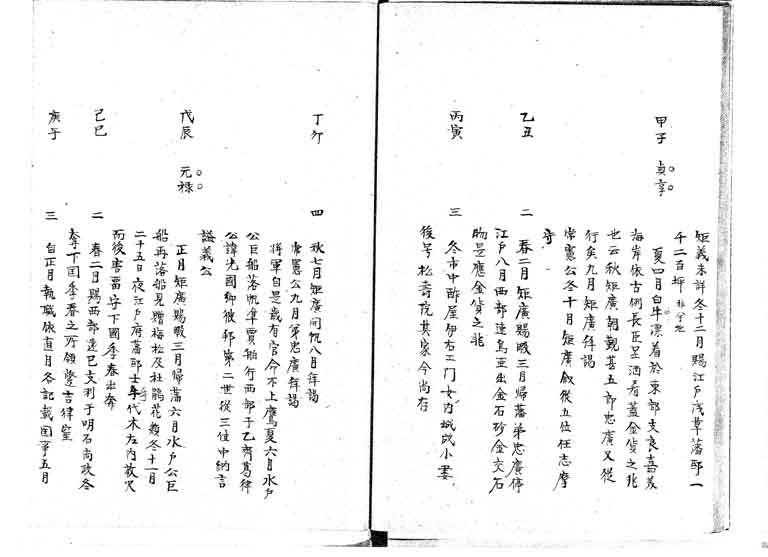 矩義未詳冬十二月賜江戸浅草藩邸一
千二百坪
甲子 貞享。。
夏四月白牛漂着於東部支良嘉美
海岸依古例長臣呈酒肴蓋金貨之兆
也云秋矩廣朝覲甚五郎忠廣又從
行矣九月矩廣拜謁
常憲公冬十月矩廣叙從五位任志摩
守
乙丑 二 春二月矩廣賜暇三月歸藩弟忠廣停
江戸八月西部逹烏亜出金石砂金交石
物是應金貨之兆
丙寅 三 冬市中酢屋伊右エ門女内城成小妻
後号松壽院其家今尚存
丁卯 四 秋七月矩廣同帆八月拜謁
常憲公九月弟忠廣拜謁
將軍自是歳有官命不上鷹夏六月水戸
公巨船落帆準賈舶行西部于乙齊葛律
公諱光國卿彼邦第二世從三位中納言
謚義公
戊辰 元禄。。
正月矩廣賜暇三月歸藩六月水戸公巨
船再落船見贈梅松及杜鵑花数冬十一月
二十五日夜江戸府藩邸士
代木左内放火
而後害
守下國季春出奔
己巳 二 春二月賜西部逹已支利于明石尚政冬
奪下国季春之所領
吉律室
庚午 三 自正月執職依直月各記載国事五月